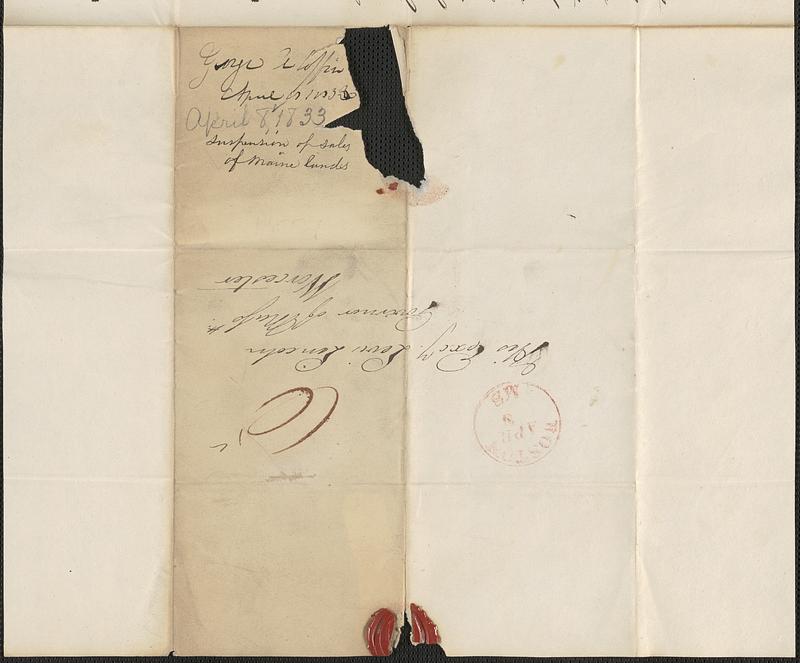 George W Coffin
April 8 1833
April 8, 1833
Suspension of Sales
of Maine lands
His Excy. Levi Lincoln
Governor of Mass.
Worcester
6
BOSTON
APR
8
MS